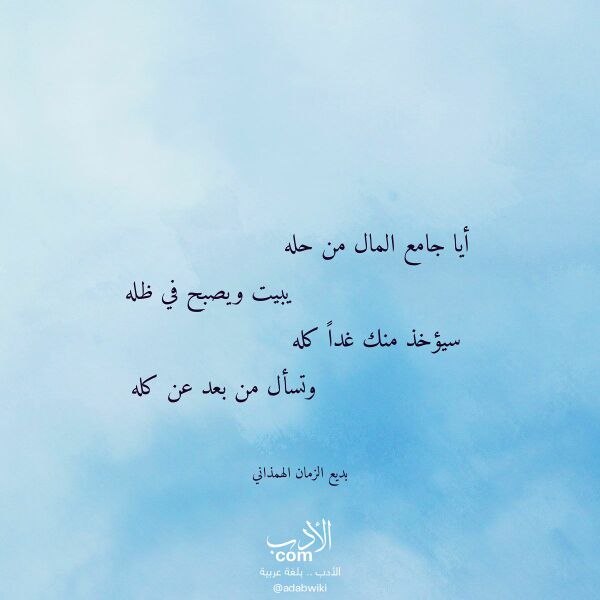 أيا جامع المال من حله
يبيت ويصبح في ظله
سيؤخذ منك غداً كله
وتسأل من بعد عن كله
بديع الزمان الهمذاني
الأدب
com
الأدب .. بلغة عربية
@adabwiki